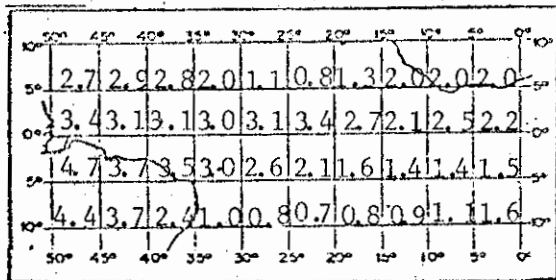 50° 45° 40° 35° 30° 25° 20° 15° 10° 5° 0°
10° 10°
2.7 2.9 2.8 2.0 1.1 0.8 1.3 2.0 2.0 2.0
5° 5°
3.4 3.1 3.1 3.0 3.1 3.4 2.7 2.1 2.5 2.2
0° 0°
4.7 3.7 3.5 3.0 2.6 2.1 1.6 1.4 1.4 1.5
5° 5°
4.4 3.7 2.4 1.0 0.8 0.7 0.8 0.9 1.1 1.6
10° 10°
50° 45° 40° 35° 30° 25° 20° 15° 10° 5° 0°